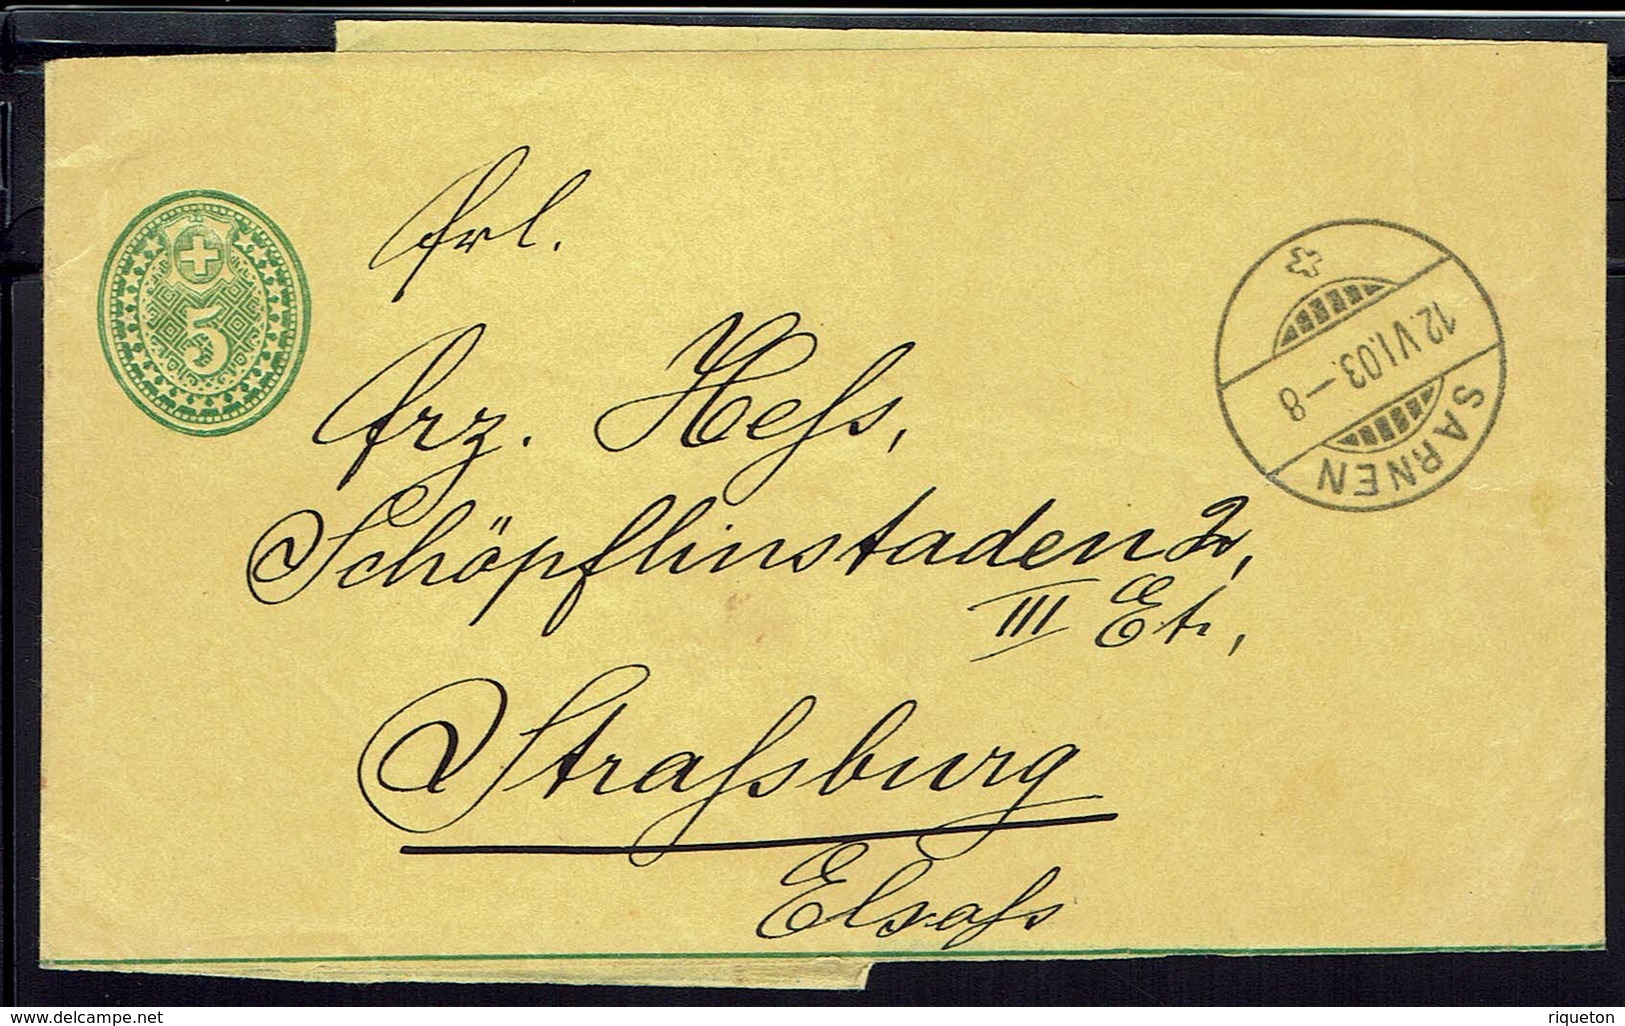 5
Frl.
Frz. Hess,
Schöpflinstaden 2,
III Et.,
Strassburg
Elsass
SARNEN
12.VI.03.–8
www.delcampe.net
riqueton